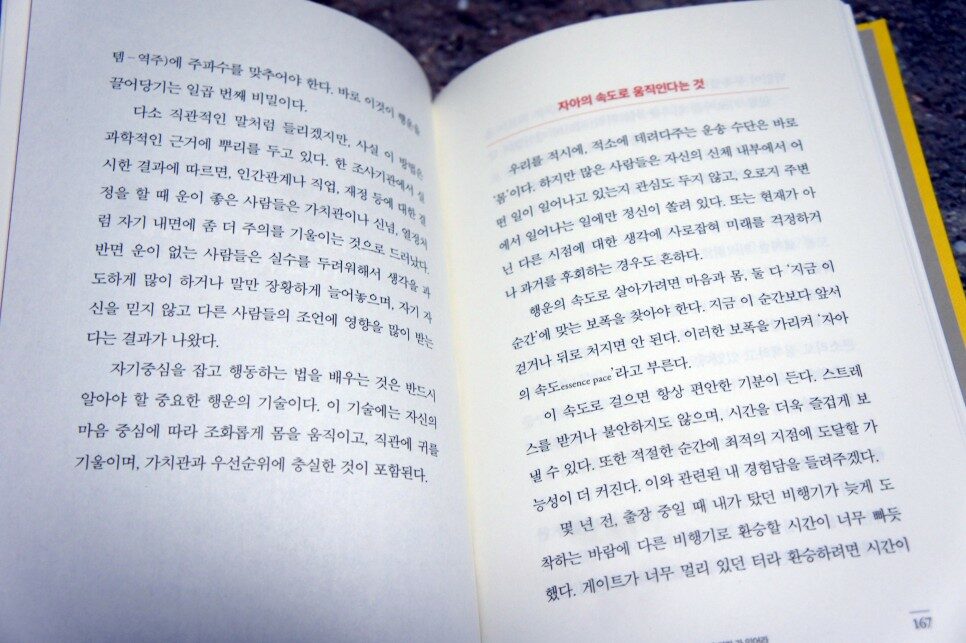 템–역주)에 주파수를 맞추어야 한다. 바로 이것이 행운을
끌어당기는 일곱 번째 비밀이다.
다소 직관적인 말처럼 들리겠지만, 사실 이 방법은
과학적인 근거에 뿌리를 두고 있다. 한 조사기관에서 실
시한 결과에 따르면, 인간관계나 직업, 재정 등에 대한 결
정을 할 때 운이 좋은 사람들은 가치관이나 신념, 열정처
럼 자기 내면에 좀 더 주의를 기울이는 것으로 드러났다.
반면 운이 없는 사람들은 실수를 두려워해서 생각을 과
도하게 많이 하거나 말만 장황하게 늘어놓으며, 자기 자
신을 믿지 않고 다른 사람들의 조언에 영향을 많이 받는
다는 결과가 나왔다.
자기중심을 잡고 행동하는 법을 배우는 것은 반드시
알아야 할 중요한 행운의 기술이다. 이 기술에는 자신의
마음 중심에 따라 조화롭게 몸을 움직이고, 직관에 귀를
기울이며, 가치관과 우선순위에 충실한 것이 포함된다.
자아의 속도로 움직인다는 것
우리를 적시에, 적소에 데려다주는 운송 수단은 바로
‘몸’이다. 하지만 많은 사람들은 자신의 신체 내부에서 어
떤 일이 일어나고 있는지 관심도 두지 않고, 오로지 주변
에서 일어나는 일에만 정신이 쏠려 있다. 또는 현재가 아
닌 다른 시점에 대한 생각에 사로잡혀 미래를 걱정하거
나 과거를 후회하는 경우도 흔하다.
행운의 속도로 살아가려면 마음과 몸, 둘 다 ‘지금 이
순간’에 맞는 보폭을 찾아야 한다. 지금 이 순간보다 앞서
걷거나 뒤로 처지면 안 된다. 이러한 보폭을 가리켜 ‘자아
의 속도essence pace’라고 부른다.
이 속도로 걸으면 항상 편안한 기분이 든다. 스트레
스를 받거나 불안하지도 않으며, 시간을 더욱 즐겁게 보
낼 수 있다. 또한 적절한 순간에 최적의 지점에 도달할 가
능성이 더 커진다. 이와 관련된 내 경험담을 들려주겠다.
몇 년 전, 출장 중일 때 내가 탔던 비행기가 늦게 도
착하는 바람에 다른 비행기로 환승할 시간이 너무 빠듯
했다. 게이트가 너무 멀리 있던 터라 환승하려면 시간이
167